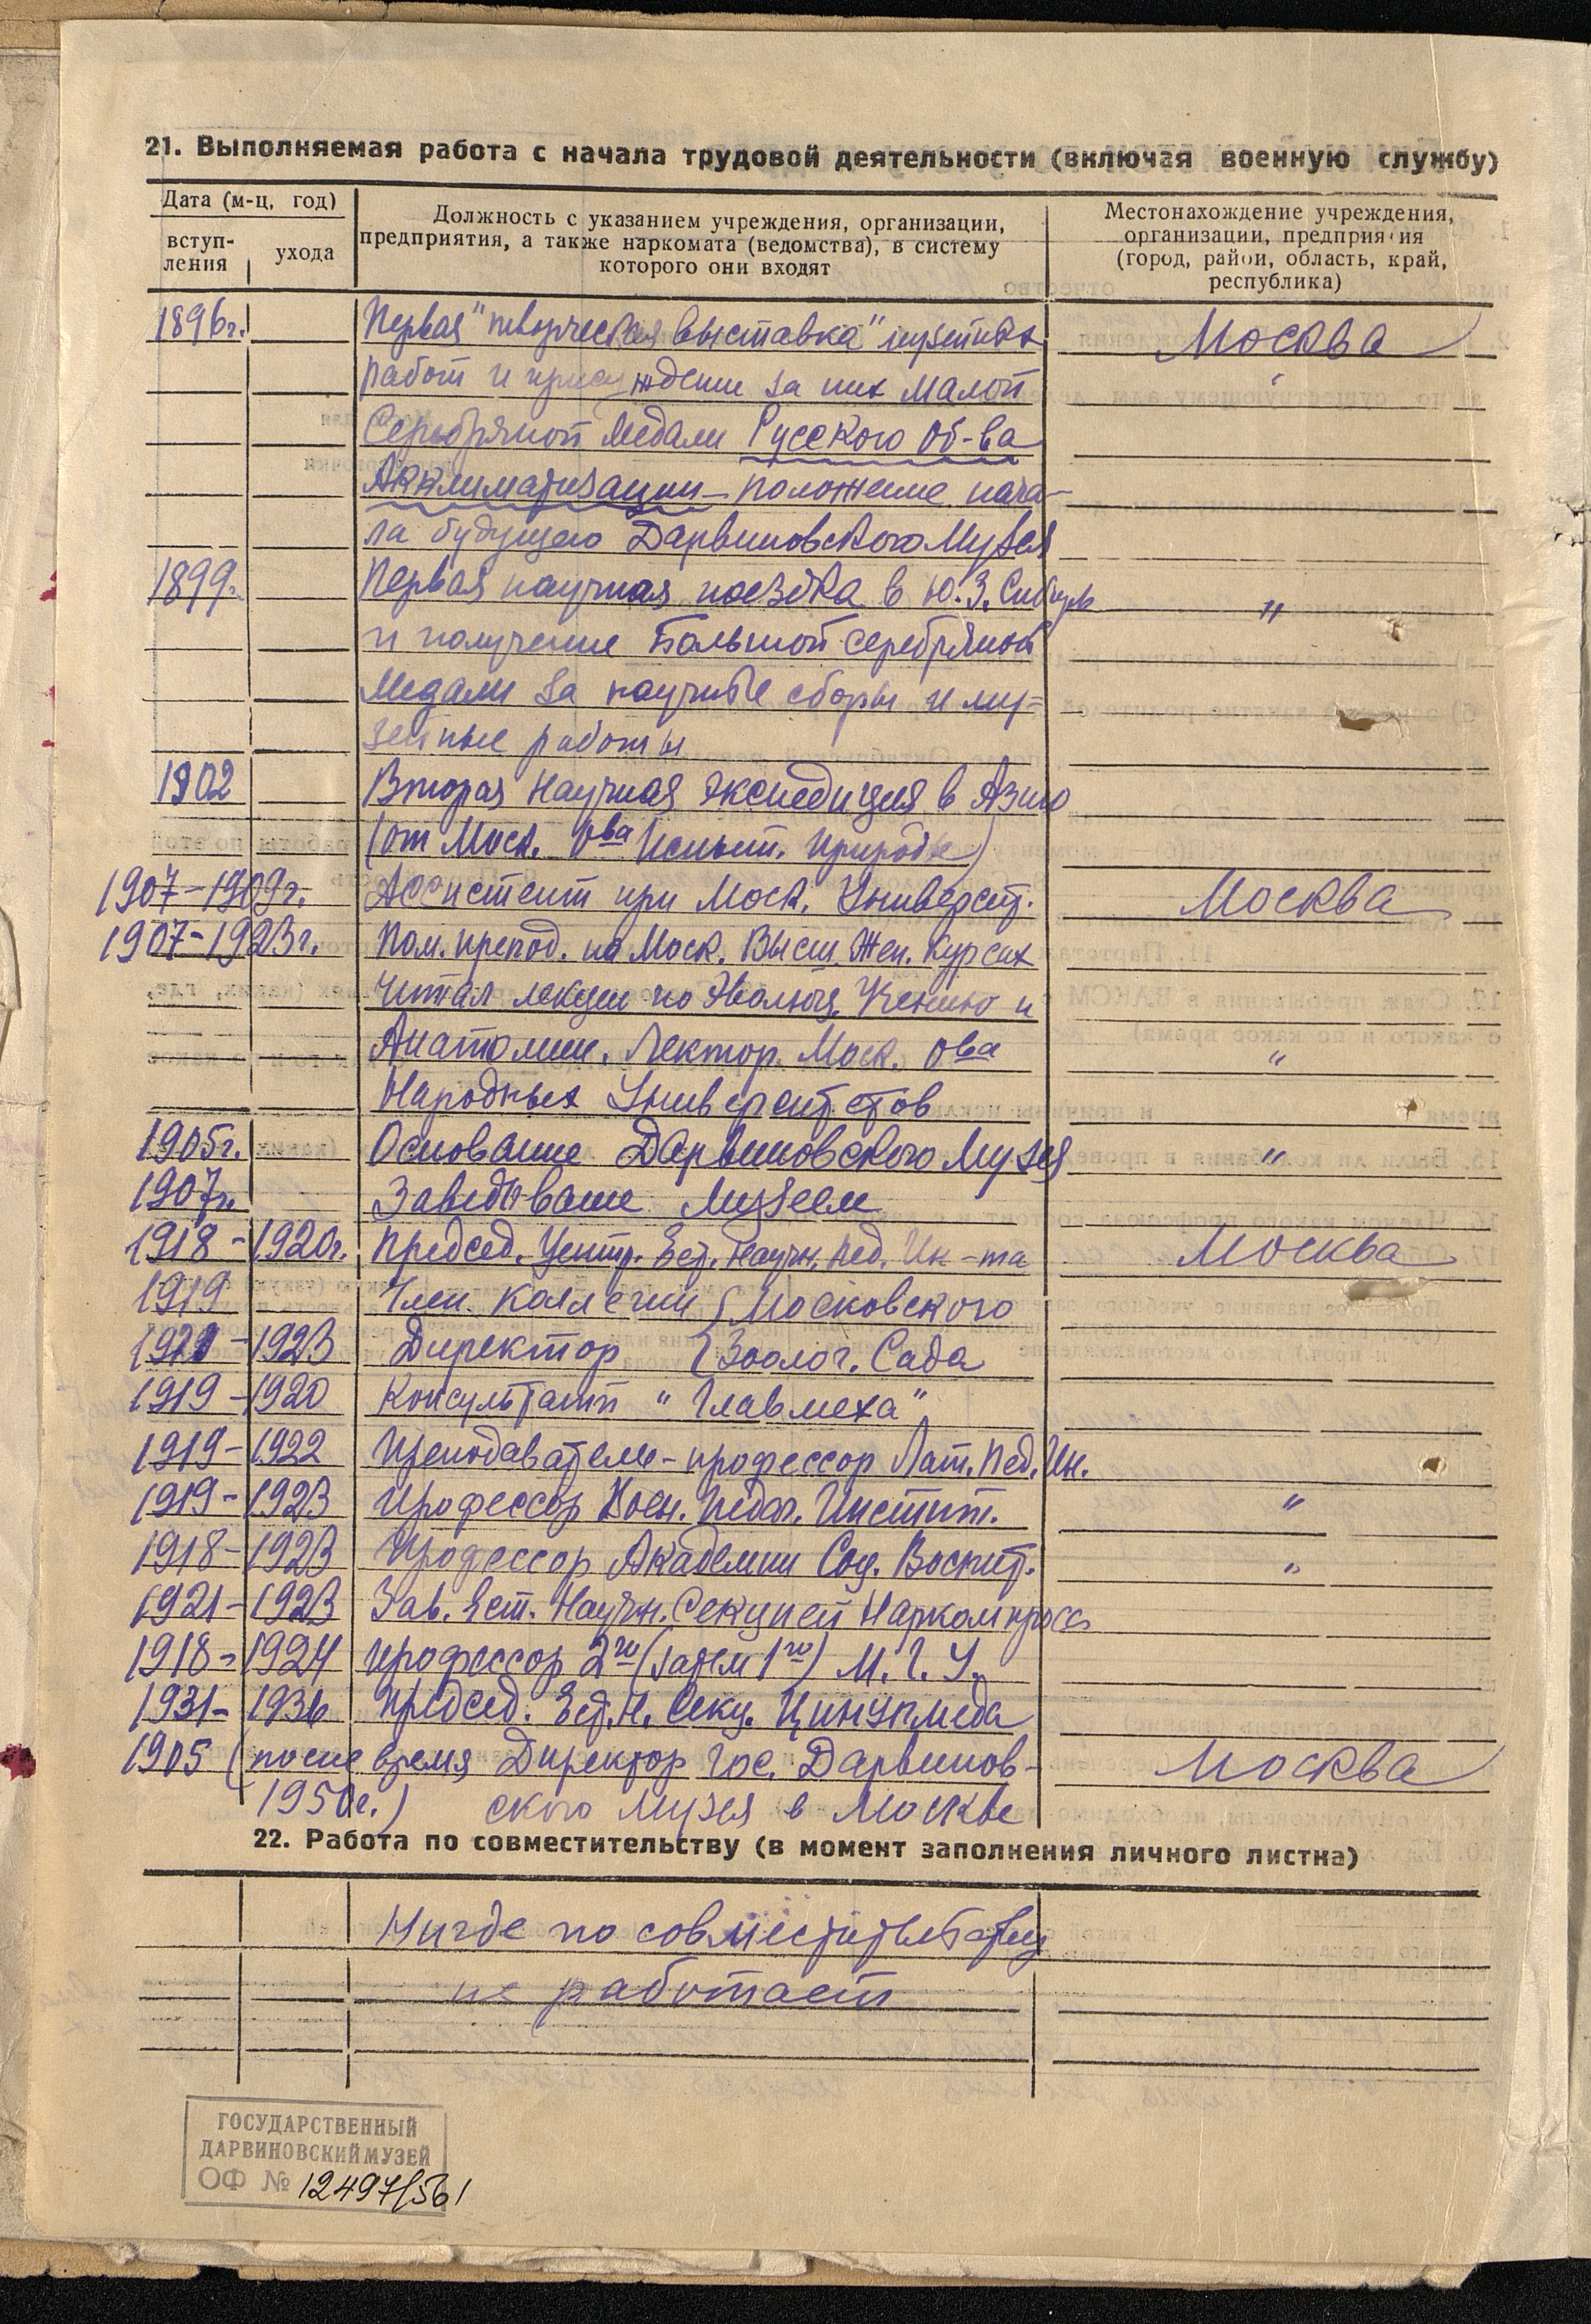 21. Выполняемая работа с начала трудовой деятельности (включая военную службу)
Дата (м-ц, год)
вступ-
ления
ухода
Должность с указанием учреждения, организации,
предприятия, а также наркомата (ведомства), в систему
которого они входят
Местонахождение учреждения,
организации, предприятия
(город, район, область, край,
республика)
1896г. Первая "творческая выставка" музейных Москва
работ и присуждение за них Малой
Серебряной Медали Русского Об-ва
Акклиматизации – положение нача-
ла будущего Дарвиновского Музея
1899г. Первая научная поездка в Ю.З. Сибирь "
и получение Большой серебряной
Медали за научные сборы и му-
зейные работы
1902 Вторая Научная экспедиция в Азию
(от Моск. О-ва Испыт. Природы)
1907–1909г. Ассистент при Моск. Университ. Москва
1907–1923г. Пом. препод. на Моск. Высш. Жен. Курсах
Читал лекции по Эволюц. Учению и
Анатомии. Лектор Моск. О-ва "
Народных Университетов
1905г. Основание Дарвиновского Музея "
1907г. Заведывание Музеем
1918–1920г. Председ. Центр. Ест. Научн. Пед. Ин-та Москва
1919 Член. коллегии { Московского
1921–1923 Директор { Зоолог. Сада
1919–1920 Консультант "Главмеха"
1919–1922 Преподаватель-профессор Лат. Пед. Ин.
1919–1923 Профессор Воен. Педаг. Институт. "
1918–1923 Профессор Академии Соц. Воспит. "
1921–1923 Зав. Ест. Научн. Секцией Наркомпроса
1918–1924 Профессор 2го (затем 1го) М.Г.У.
1931–1936 Председ. Ест. Н. Секц.
1905 (по сие время Директор Гос. Дарвинов- Москва
1950г.) ского Музея в Москве
22. Работа по совместительству (в момент заполнения личного листка)
Нигде по совместительству
не работает
ГОСУДАРСТВЕННЫЙ
ДАРВИНОВСКИЙ МУЗЕЙ
ОФ № 12497/561